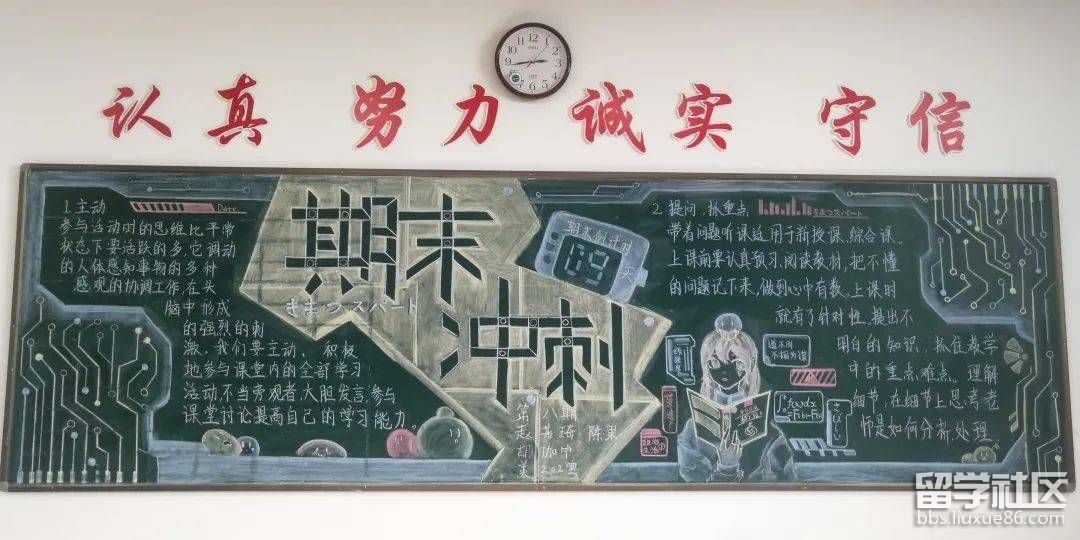 认真 努力 诚实 守信
1.主动
Date
参与活动时的思维比平常
状态下要活跃的多,它调动
的人体感知事物的多种
感观的协调工作,在头
脑中形成
的强烈的刺
激,我们要主动、积极
地参与课堂内的全部学习
活动,不当旁观者,大胆发言,参与
课堂讨论提高自己的学习能力
期末
きまつスパート
冲刺
期末倒计时
09
天
第八期
陈果
2.提问、抓重点
きまつスパート
带着问题听课适用于新授课、综合课。
上课前要认真预习、阅读教材,把不懂
的问题记下来,做到心中有数。上课时
就有了针对性,提出不
明白的知识,抓住教学
中的重点难点。理解
细节,在细节上思考老
师是如何分析处理
道不同
不相为谋
留学社区
bbs.liuxue86.com